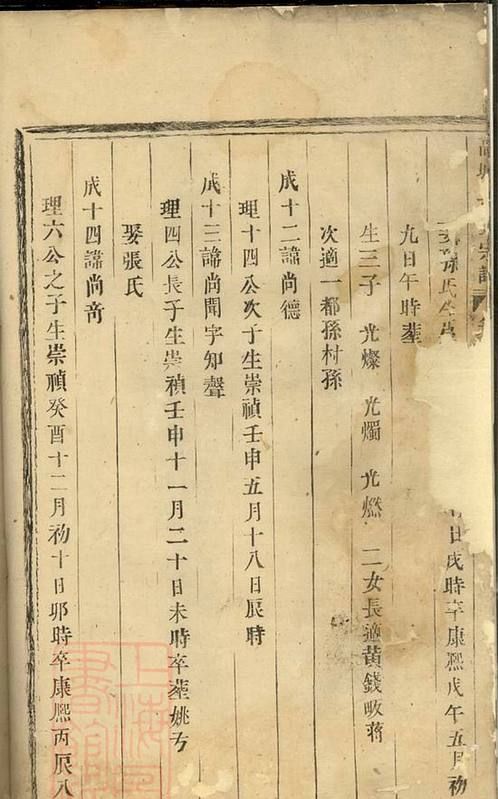 宗譜
孫氏生
日戌時卒康熙戊午五月初
九日午時葬
生三子 光燦 光燭 光燃 二女長適黃錢畈蔣
次適一都孫村孫
成十二諱尚德
理十四公次子生崇禎壬申五月十八日辰時
成十三諱尚聞字知聲
理四公長子生崇禎壬申十一月二十日未時卒葬姚方
娶張氏
成十四諱尚竒
理六公之子生崇禎癸酉十二月初十日卯時卒康熙丙辰八
上海